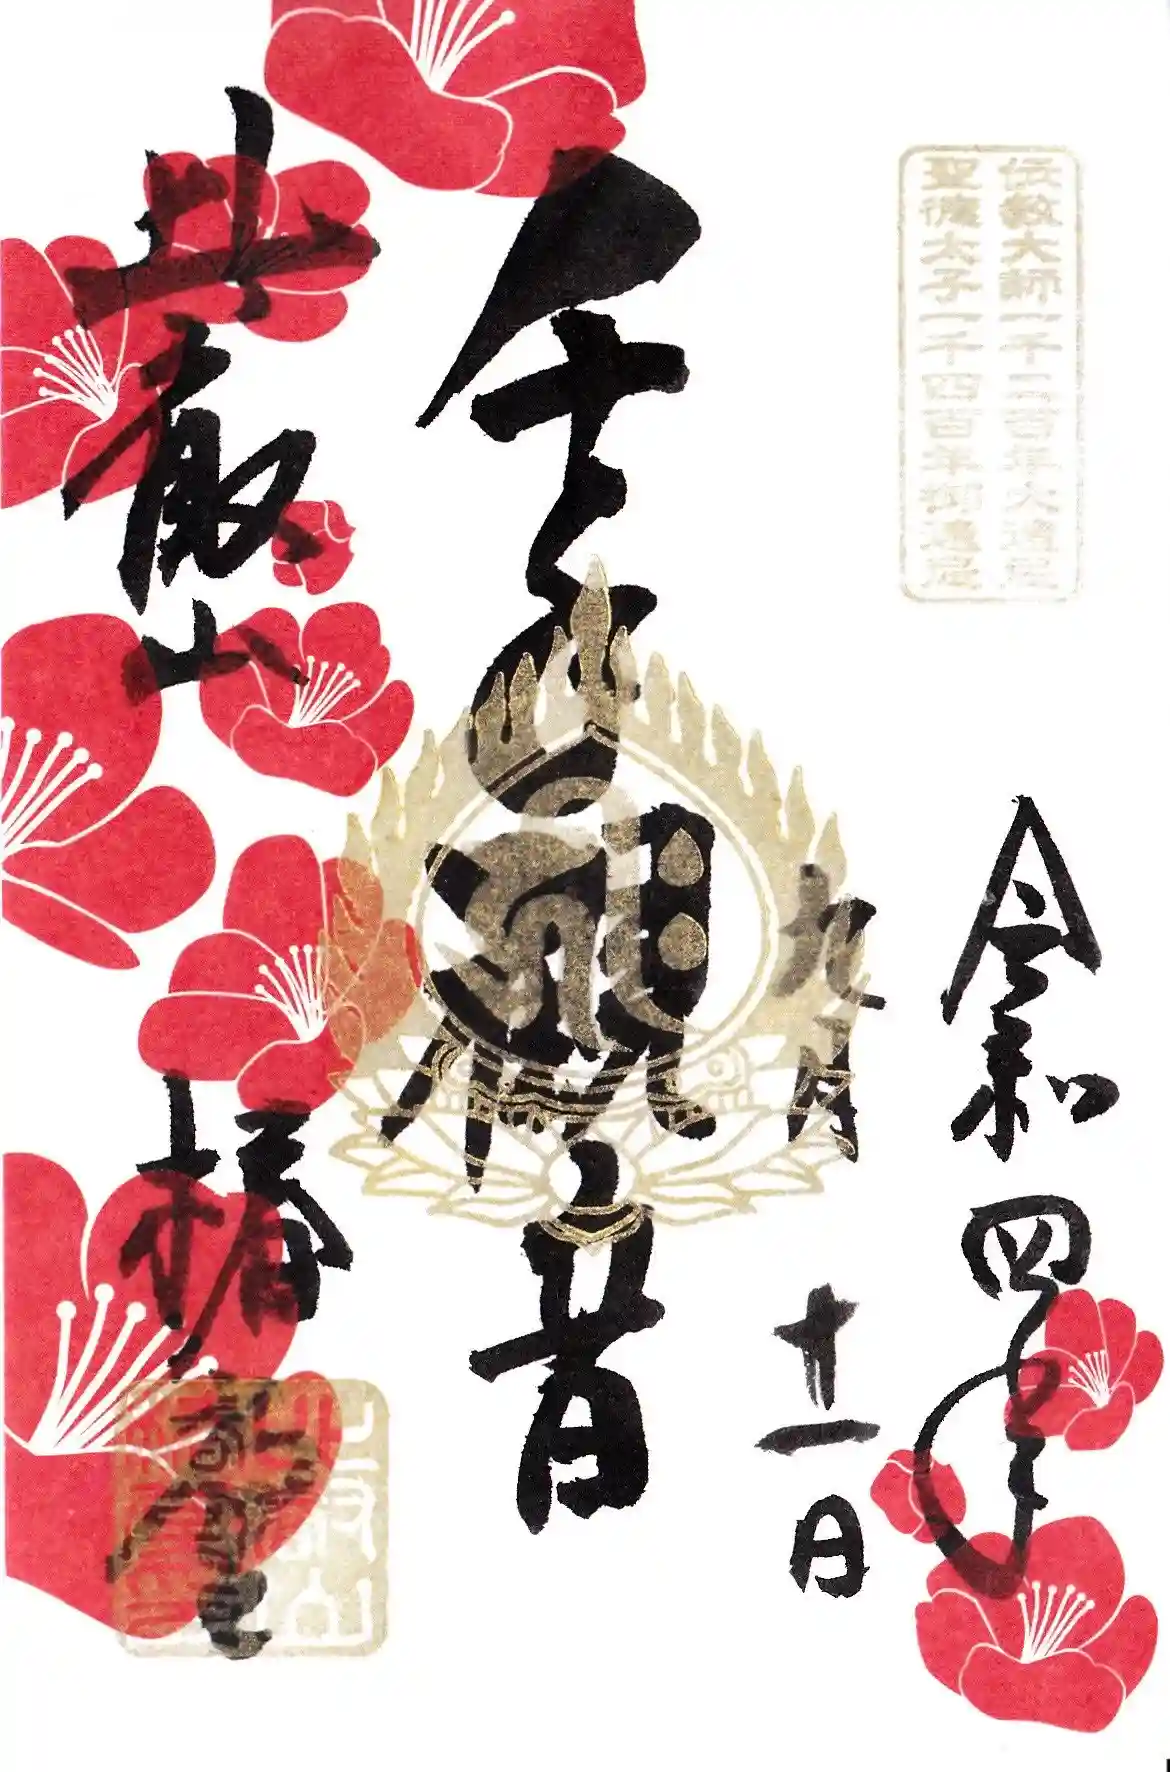 伝教大師一千二百年大遠忌
聖徳太子一千四百年御遠忌
令和四年
九月
十一日
千手観音
比叡山
椿堂